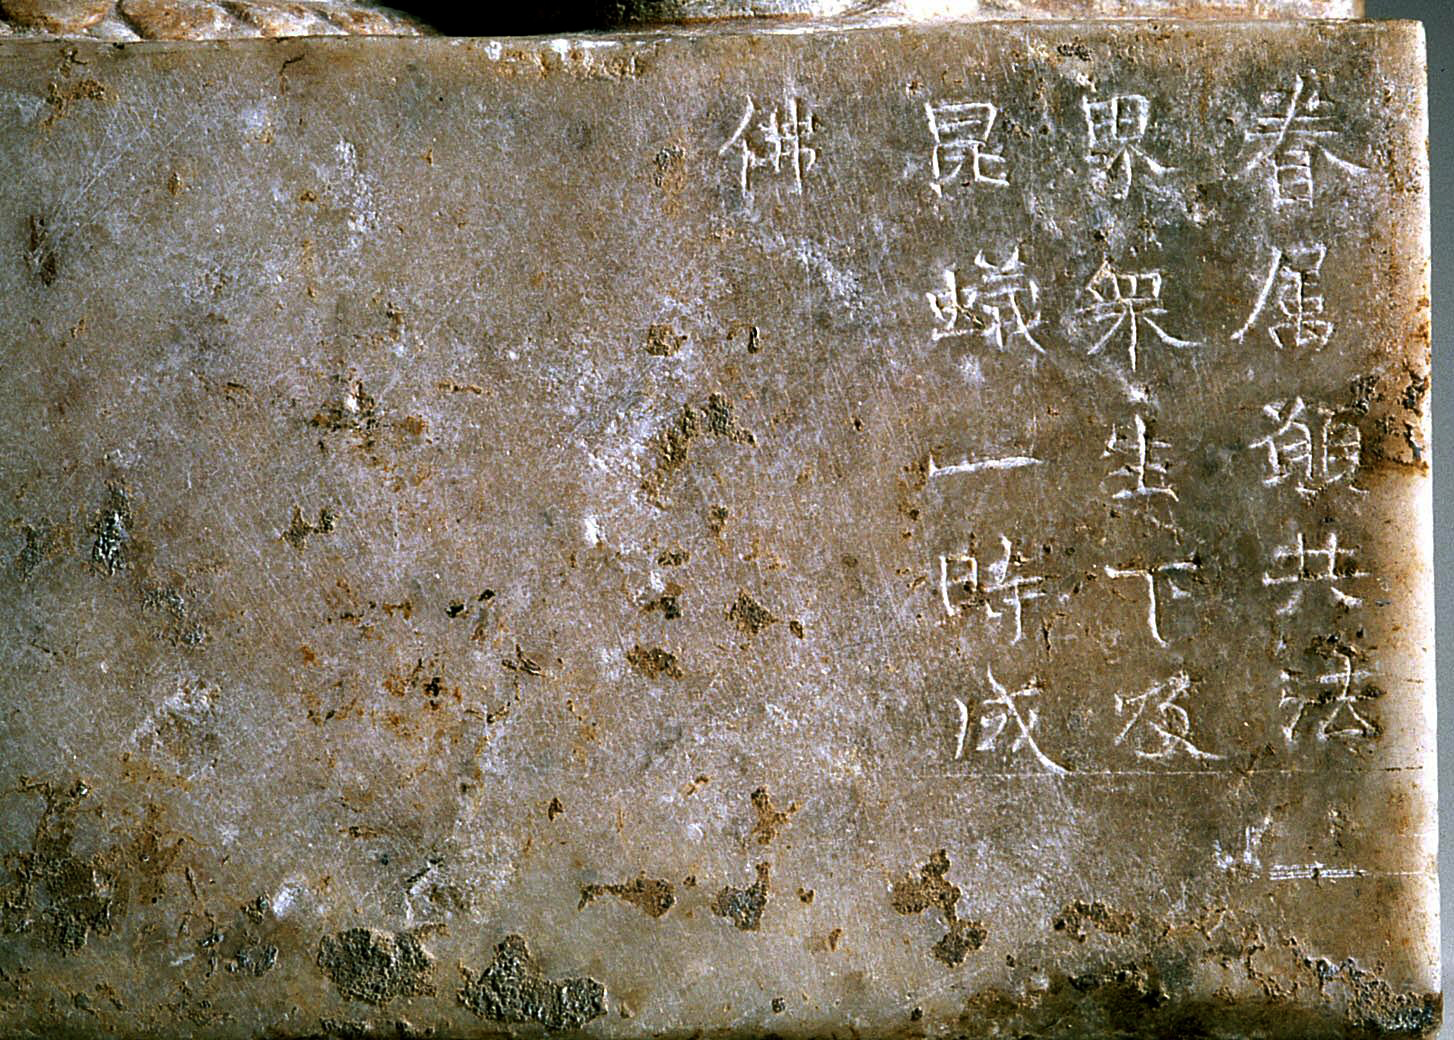 眷属願共法
界衆生下及
昆蟻一時成
佛